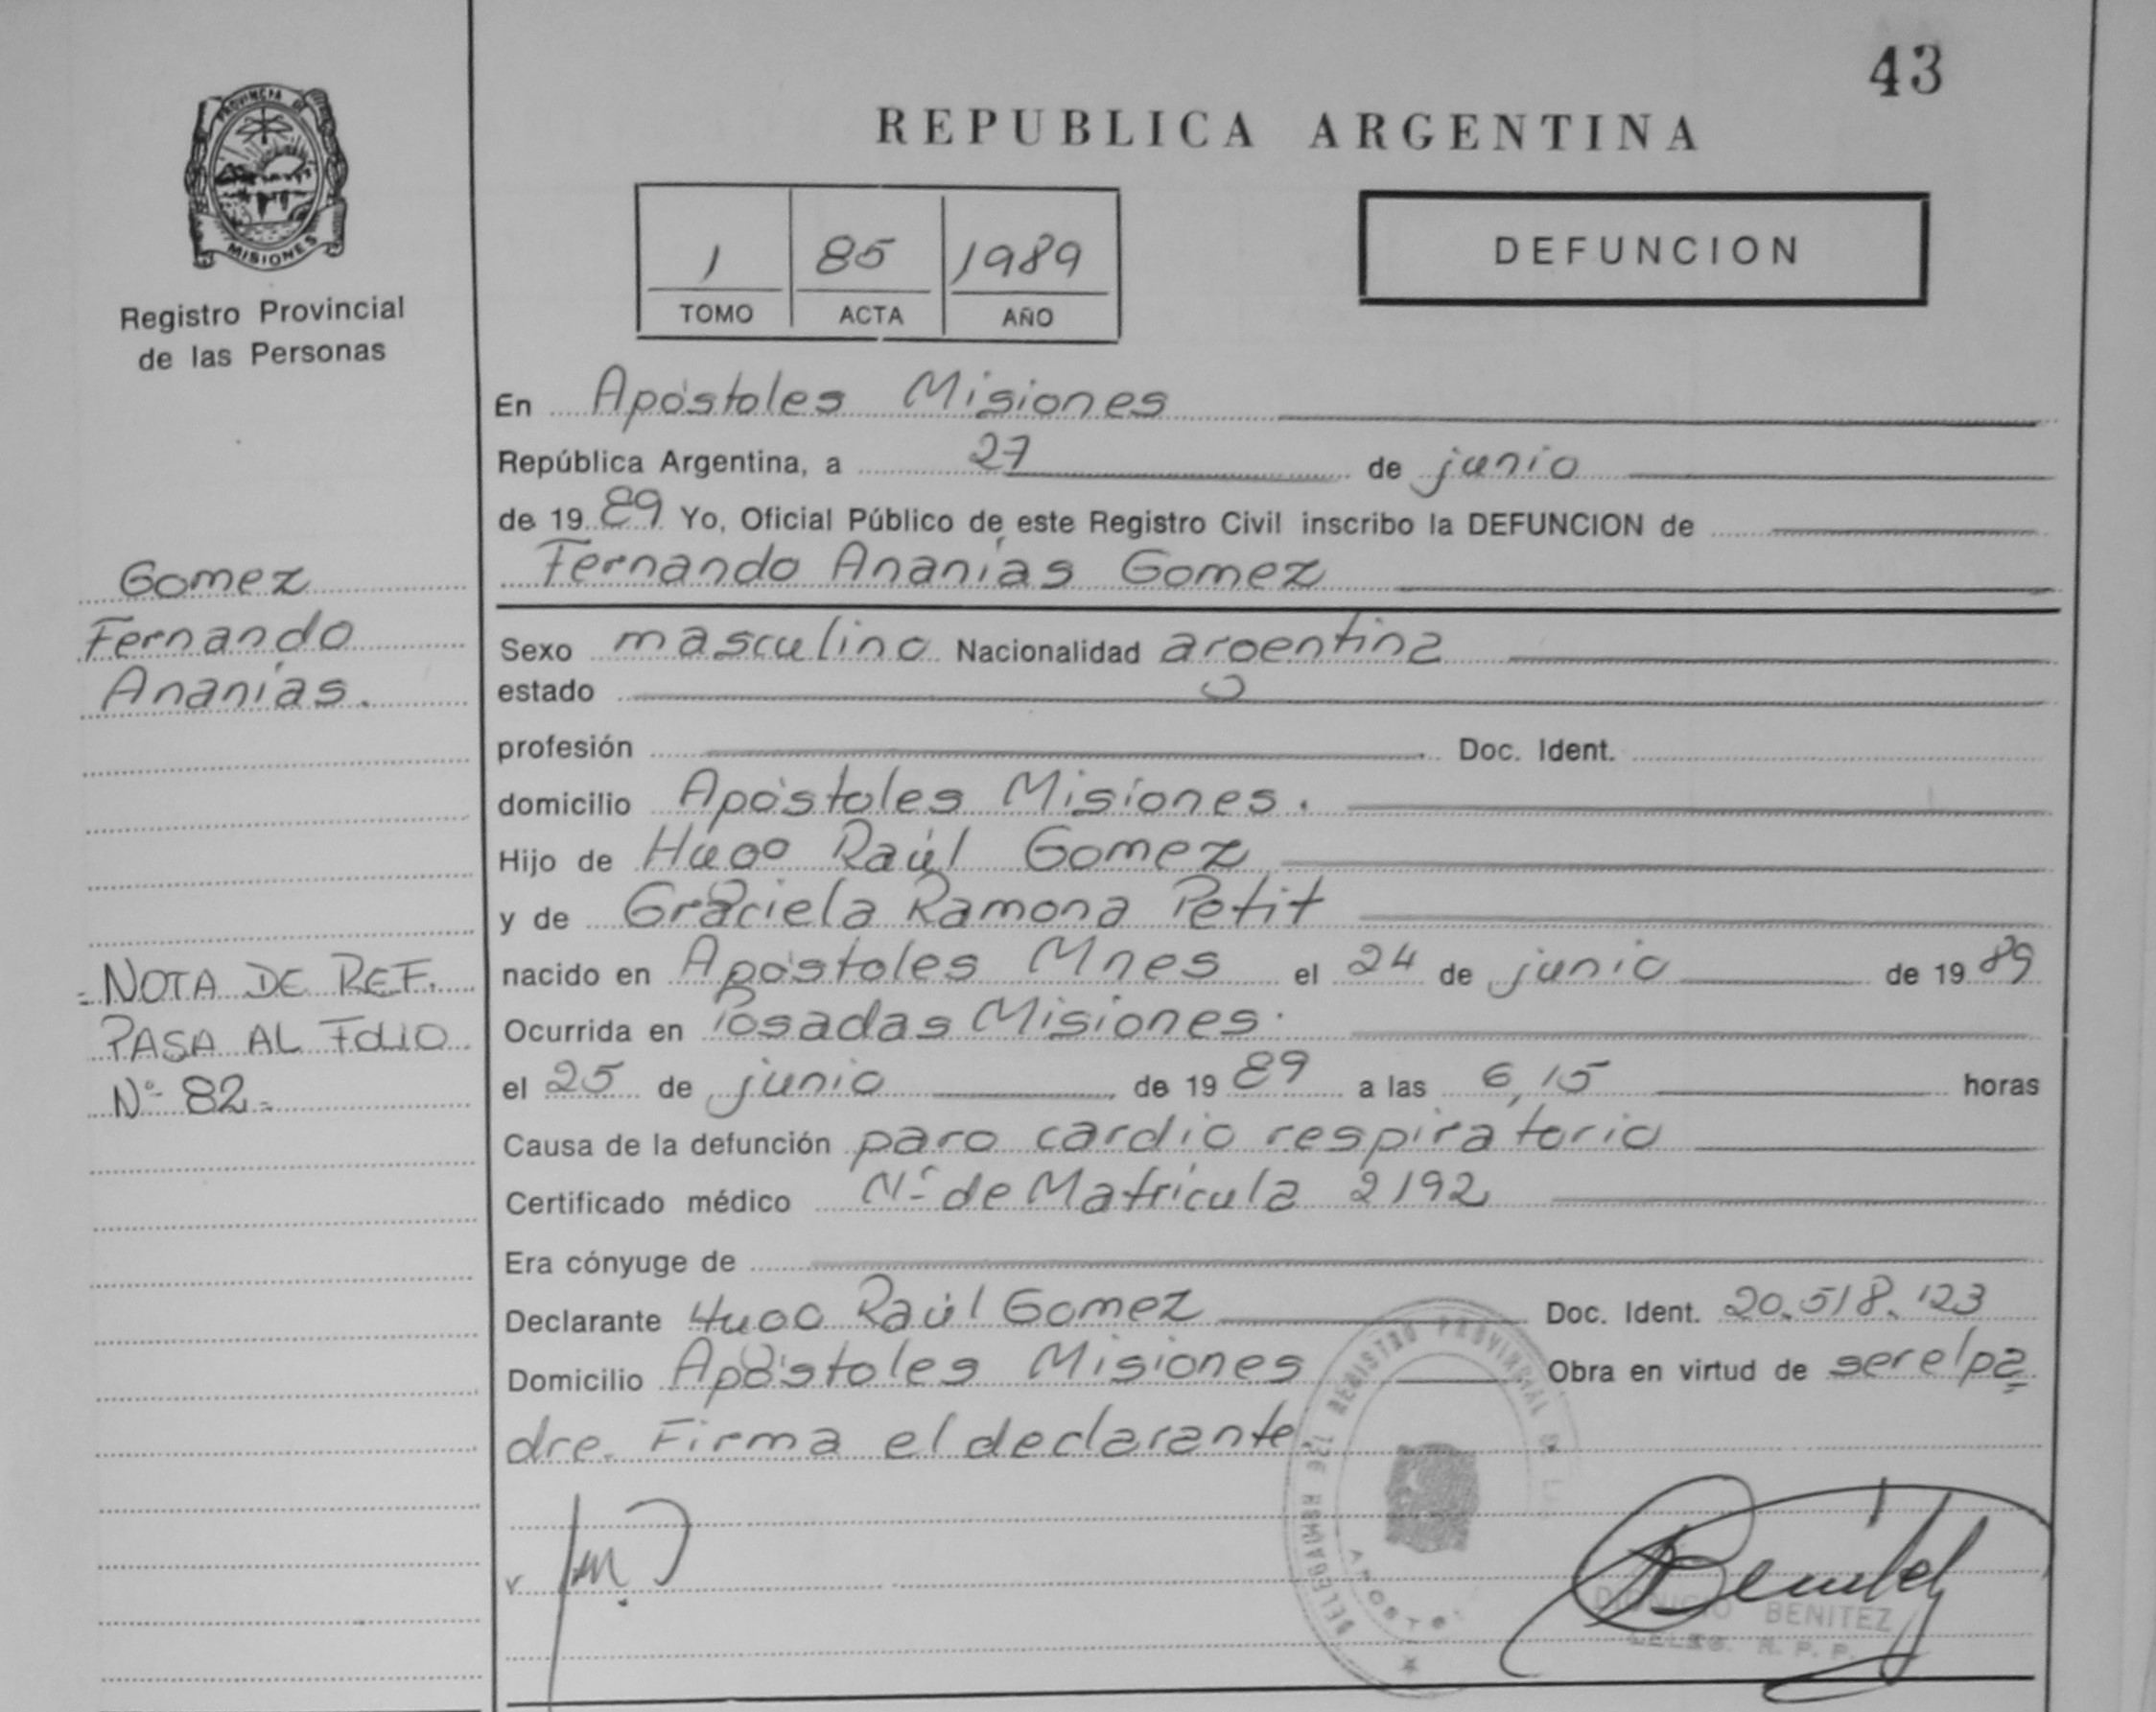 43
PROVINCIA DE
MISIONES
Registro Provincial
de las Personas
REPUBLICA ARGENTINA
1 85 1989
TOMO ACTA AÑO
DEFUNCION
En Apóstoles Misiones
República Argentina, a 27 de junio
de 19 89 Yo, Oficial Público de este Registro Civil inscribo la DEFUNCION de
Fernando Ananías Gomez
Gomez
Fernando
Ananías.
Sexo masculino Nacionalidad argentina
estado
profesión Doc. Ident.
domicilio Apóstoles Misiones.
Hijo de Hugo Raúl Gomez
y de Graciela Ramona Petit
nacido en Apóstoles Mnes el 24 de junio de 19 89
Ocurrida en Posadas Misiones.
el 25 de junio de 19 89 a las 6,15 horas
Causa de la defunción paro cardio respiratorio
Certificado médico Nº de Matrícula 2192
Era cónyuge de
Declarante Hugo Raúl Gomez Doc. Ident. 20.518.123
Domicilio Apóstoles Misiones Obra en virtud de ser el pa=
dre. Firma el declarante.
= NOTA DE REF.
PASA AL FOLIO
Nº 82=
DEL REGISTRO PROVINCIAL DE
DIONICIO BENITEZ
R. P. P.